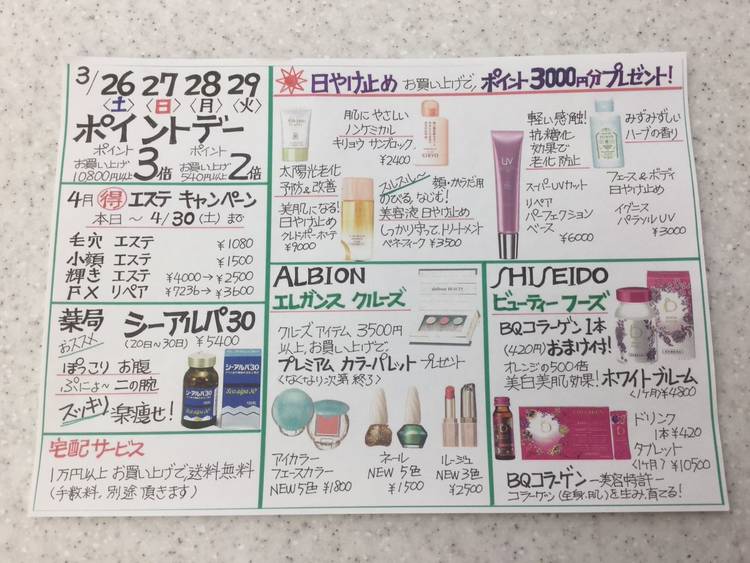 3/26 27 28 29
〈土〉〈日〉〈月〉〈火〉
ポイントデー
ポイント ポイント
お買い上げ 3倍 お買い上げ 2倍
10800円以上 540円以上
4月 得 エステ キャンペーン
本日 〜 4/30(土)まで
毛穴 エステ ¥1080
小顔 エステ ¥1500
輝き エステ ¥4000→¥2500
FX リペア ¥7236→¥3600
薬局 シーアルパ30
おススメ (20日〜30日) ¥5400
ぽっこり お腹
ぷにょ〜 二の腕
スッキリ 楽痩せ!
シーアルパ30
宅配サービス
1万円以上 お買い上げで送料無料
(手数料、別途 頂きます)
日やけ止め お買い上げで、ポイント3000円分プレゼント!
肌に やさしい
ノンケミカル
キリョウ サンブロック
¥2400
KIRYO
太陽光老化
予防&改善
美肌になる!
日やけ止め
クレ・ド・ポーボーテ
¥9000
スルスル〜
のびる,なじむ!
顔・からだ用
美容液 日やけ止め
しっかり守って,トリートメント
ベネフィーク ¥3500
軽い感触!
抗糖化
効果で
老化防止
UV
スーパーUVカット
リペア
パーフェクション
ベース ¥6000
みずみずしい
ハーブの香り
フェース&ボディ
日やけ止め
イグニス
パラソルUV
¥3000
ALBION
エレガンス クルーズ
クルーズ アイテム 3500円
以上、お買い上げで、
プレミアム カラーパレット プレゼント
〈なくなり次第 終了〉
アイカラー
フェースカラー
NEW5色 ¥1800
ネール
NEW 5色
¥1500
ルージュ
NEW 3色
¥2500
SHISEIDO
ビューティー フーズ
BQコラーゲン1本
(420円)おまけ付!
オレンジの500倍
美白美肌効果! ホワイトブルーム
〈1ヶ月〉¥4800
ドリンク
1本 ¥420
タブレット
〈1ヶ月〉¥10500
BQコラーゲン ー美容特許ー
コラーゲン(全身,肌)を生み,育てる!